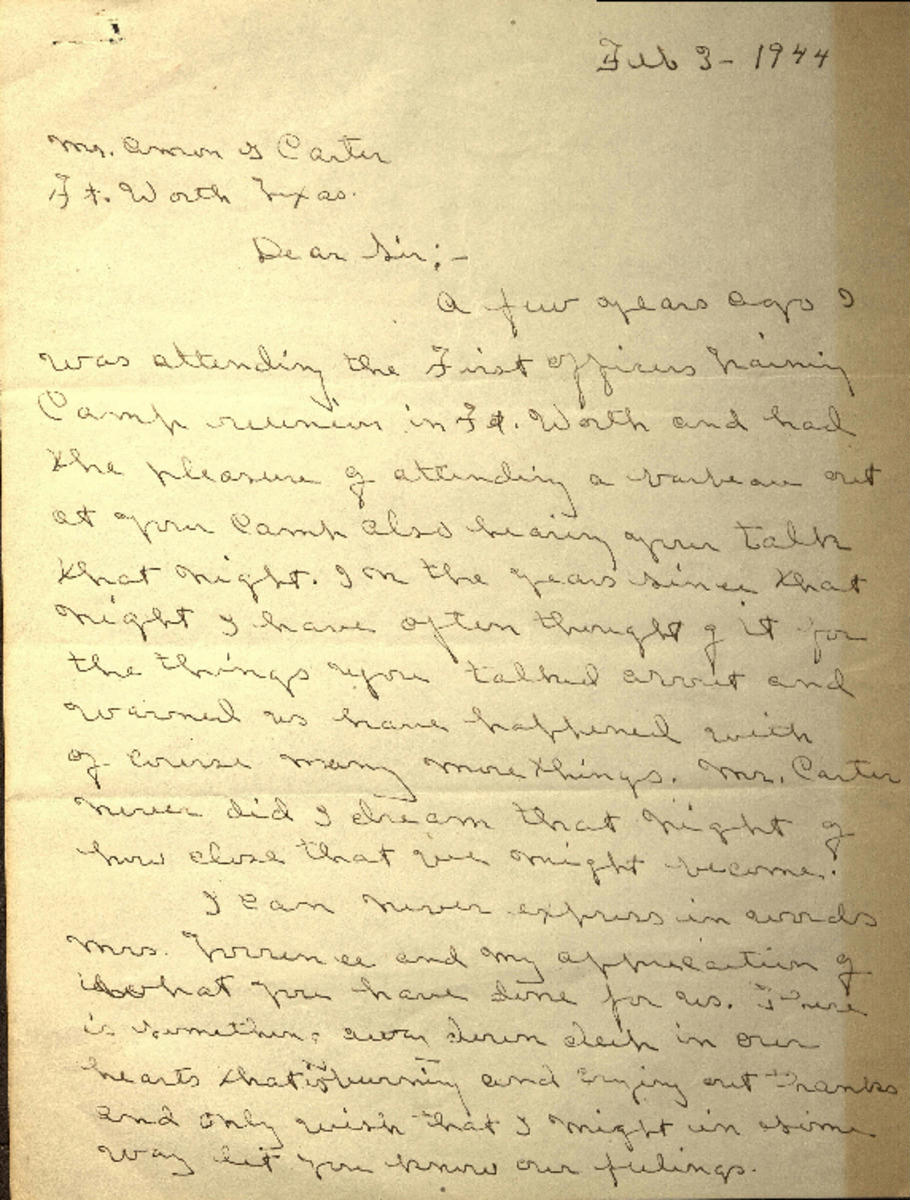 Feb 3 - 1944
Mr. Amon G Carter
Ft. Worth Texas.
Dear Sir; -
A few years ago I
was attending the First Officers Training
Camp reunion in Ft. Worth and had
the pleasure of attending a barbecue out
at your Camp also hearing your talk
that night. In the years since that
night I have often thought of it for
the things you talked about and
warned us have happened with
of course many more things. Mr. Carter
never did I dream that night of
how close that we might become.
I can never express in words
Mrs. Torrence and my appreciation of
what you have done for us. There
is something way down deep in our
hearts that is burning and crying out thanks
and only wish that I might in some
way let you know our feelings.